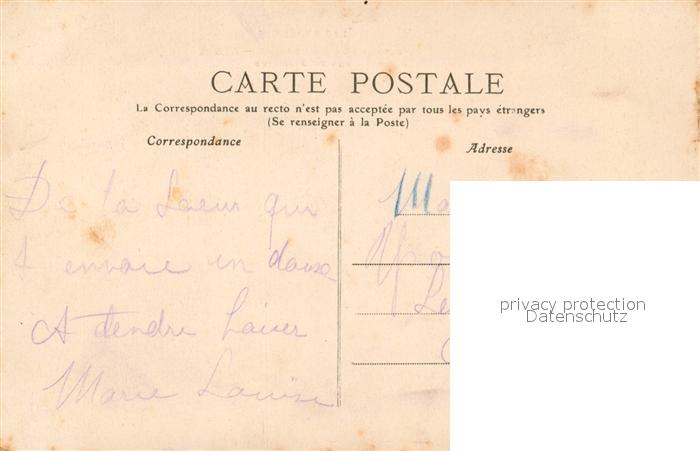 CARTE POSTALE
La Correspondance au recto n'est pas acceptée par tous les pays étrangers
(Se renseigner à la Poste)
Correspondance
Adresse
De ta Soeur qui
t envoie un doux
A tendre baiser
Marie Louise
Ma
privacy protection
Datenschutz